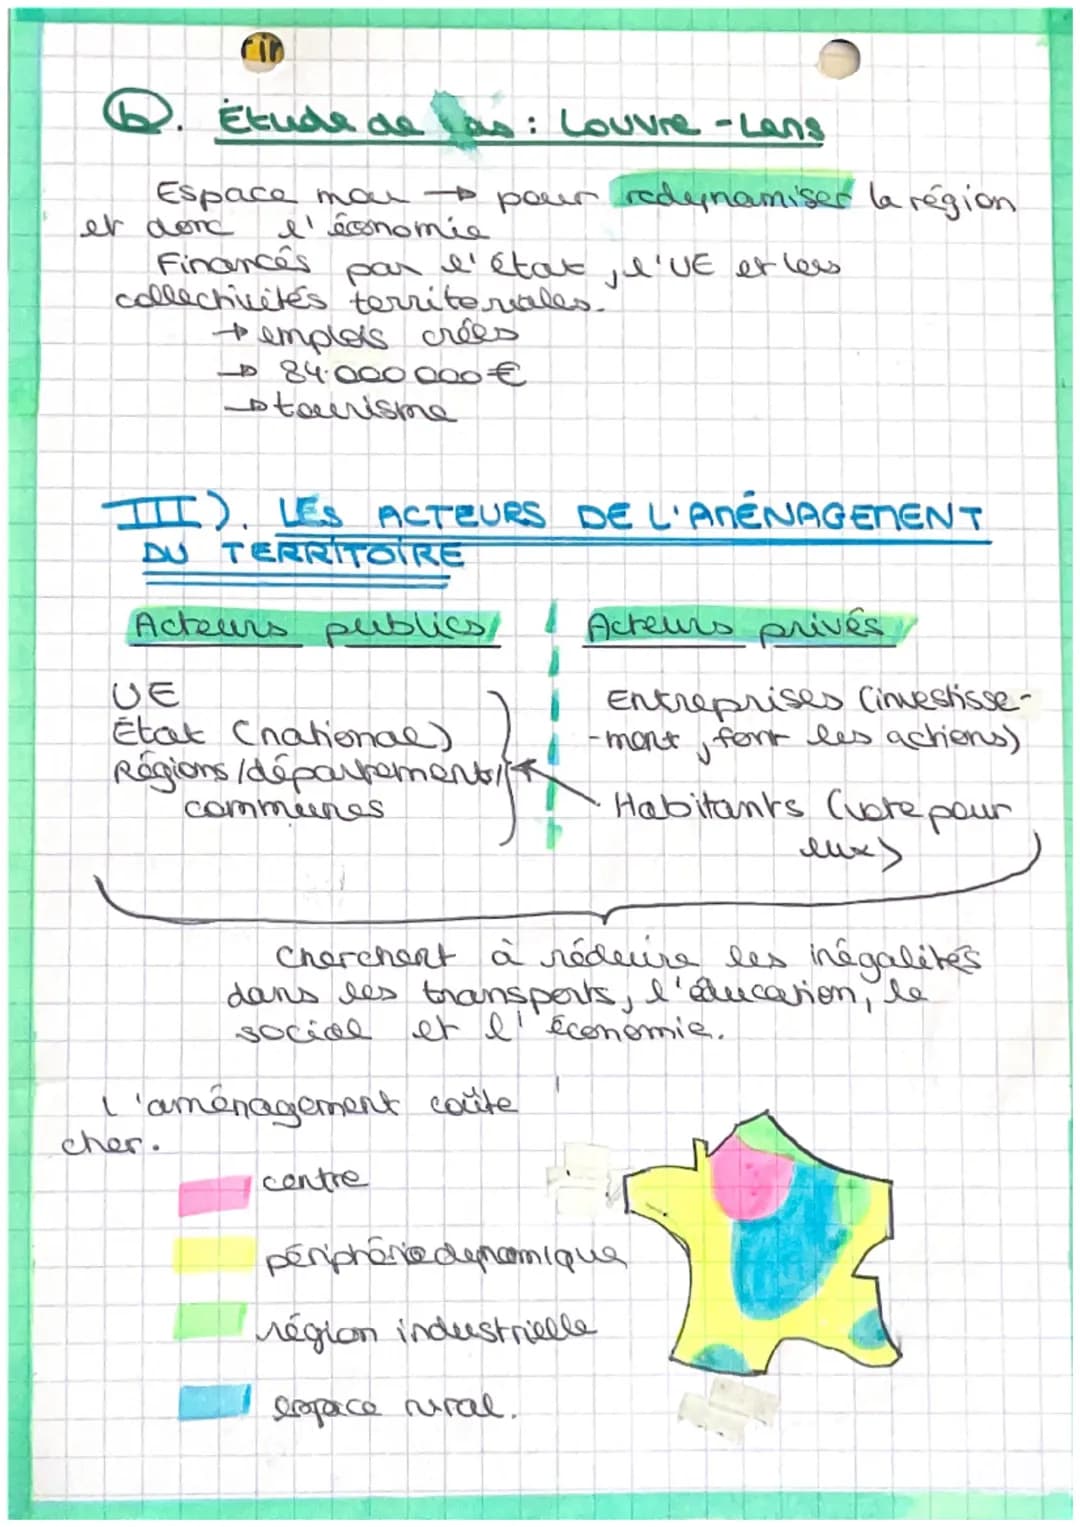 b. Étude de cas : Louvre - Lens
Espace mou → pour redynamiser la région
et donc l'économie
Financés par l'état, l'UE et les
collectivités territoriales.
→ emplois créés
→ 84.000 000 €
→ tourisme
III). LES ACTEURS DE L'AMÉNAGEMENT
DU TERRITOIRE
Acteurs publics
UE
État (national)
Régions/départements/
communes
Acteurs privés
Entreprises (investisse-
-ment, font les actions)
Habitants (vote pour
eux)
Cherchent à réduire les inégalités
dans les transports, l'éducation, le
social et l'économie.
L'aménagement coûte
cher.
centre
périphérie dynamique
région industrielle
espace rural.